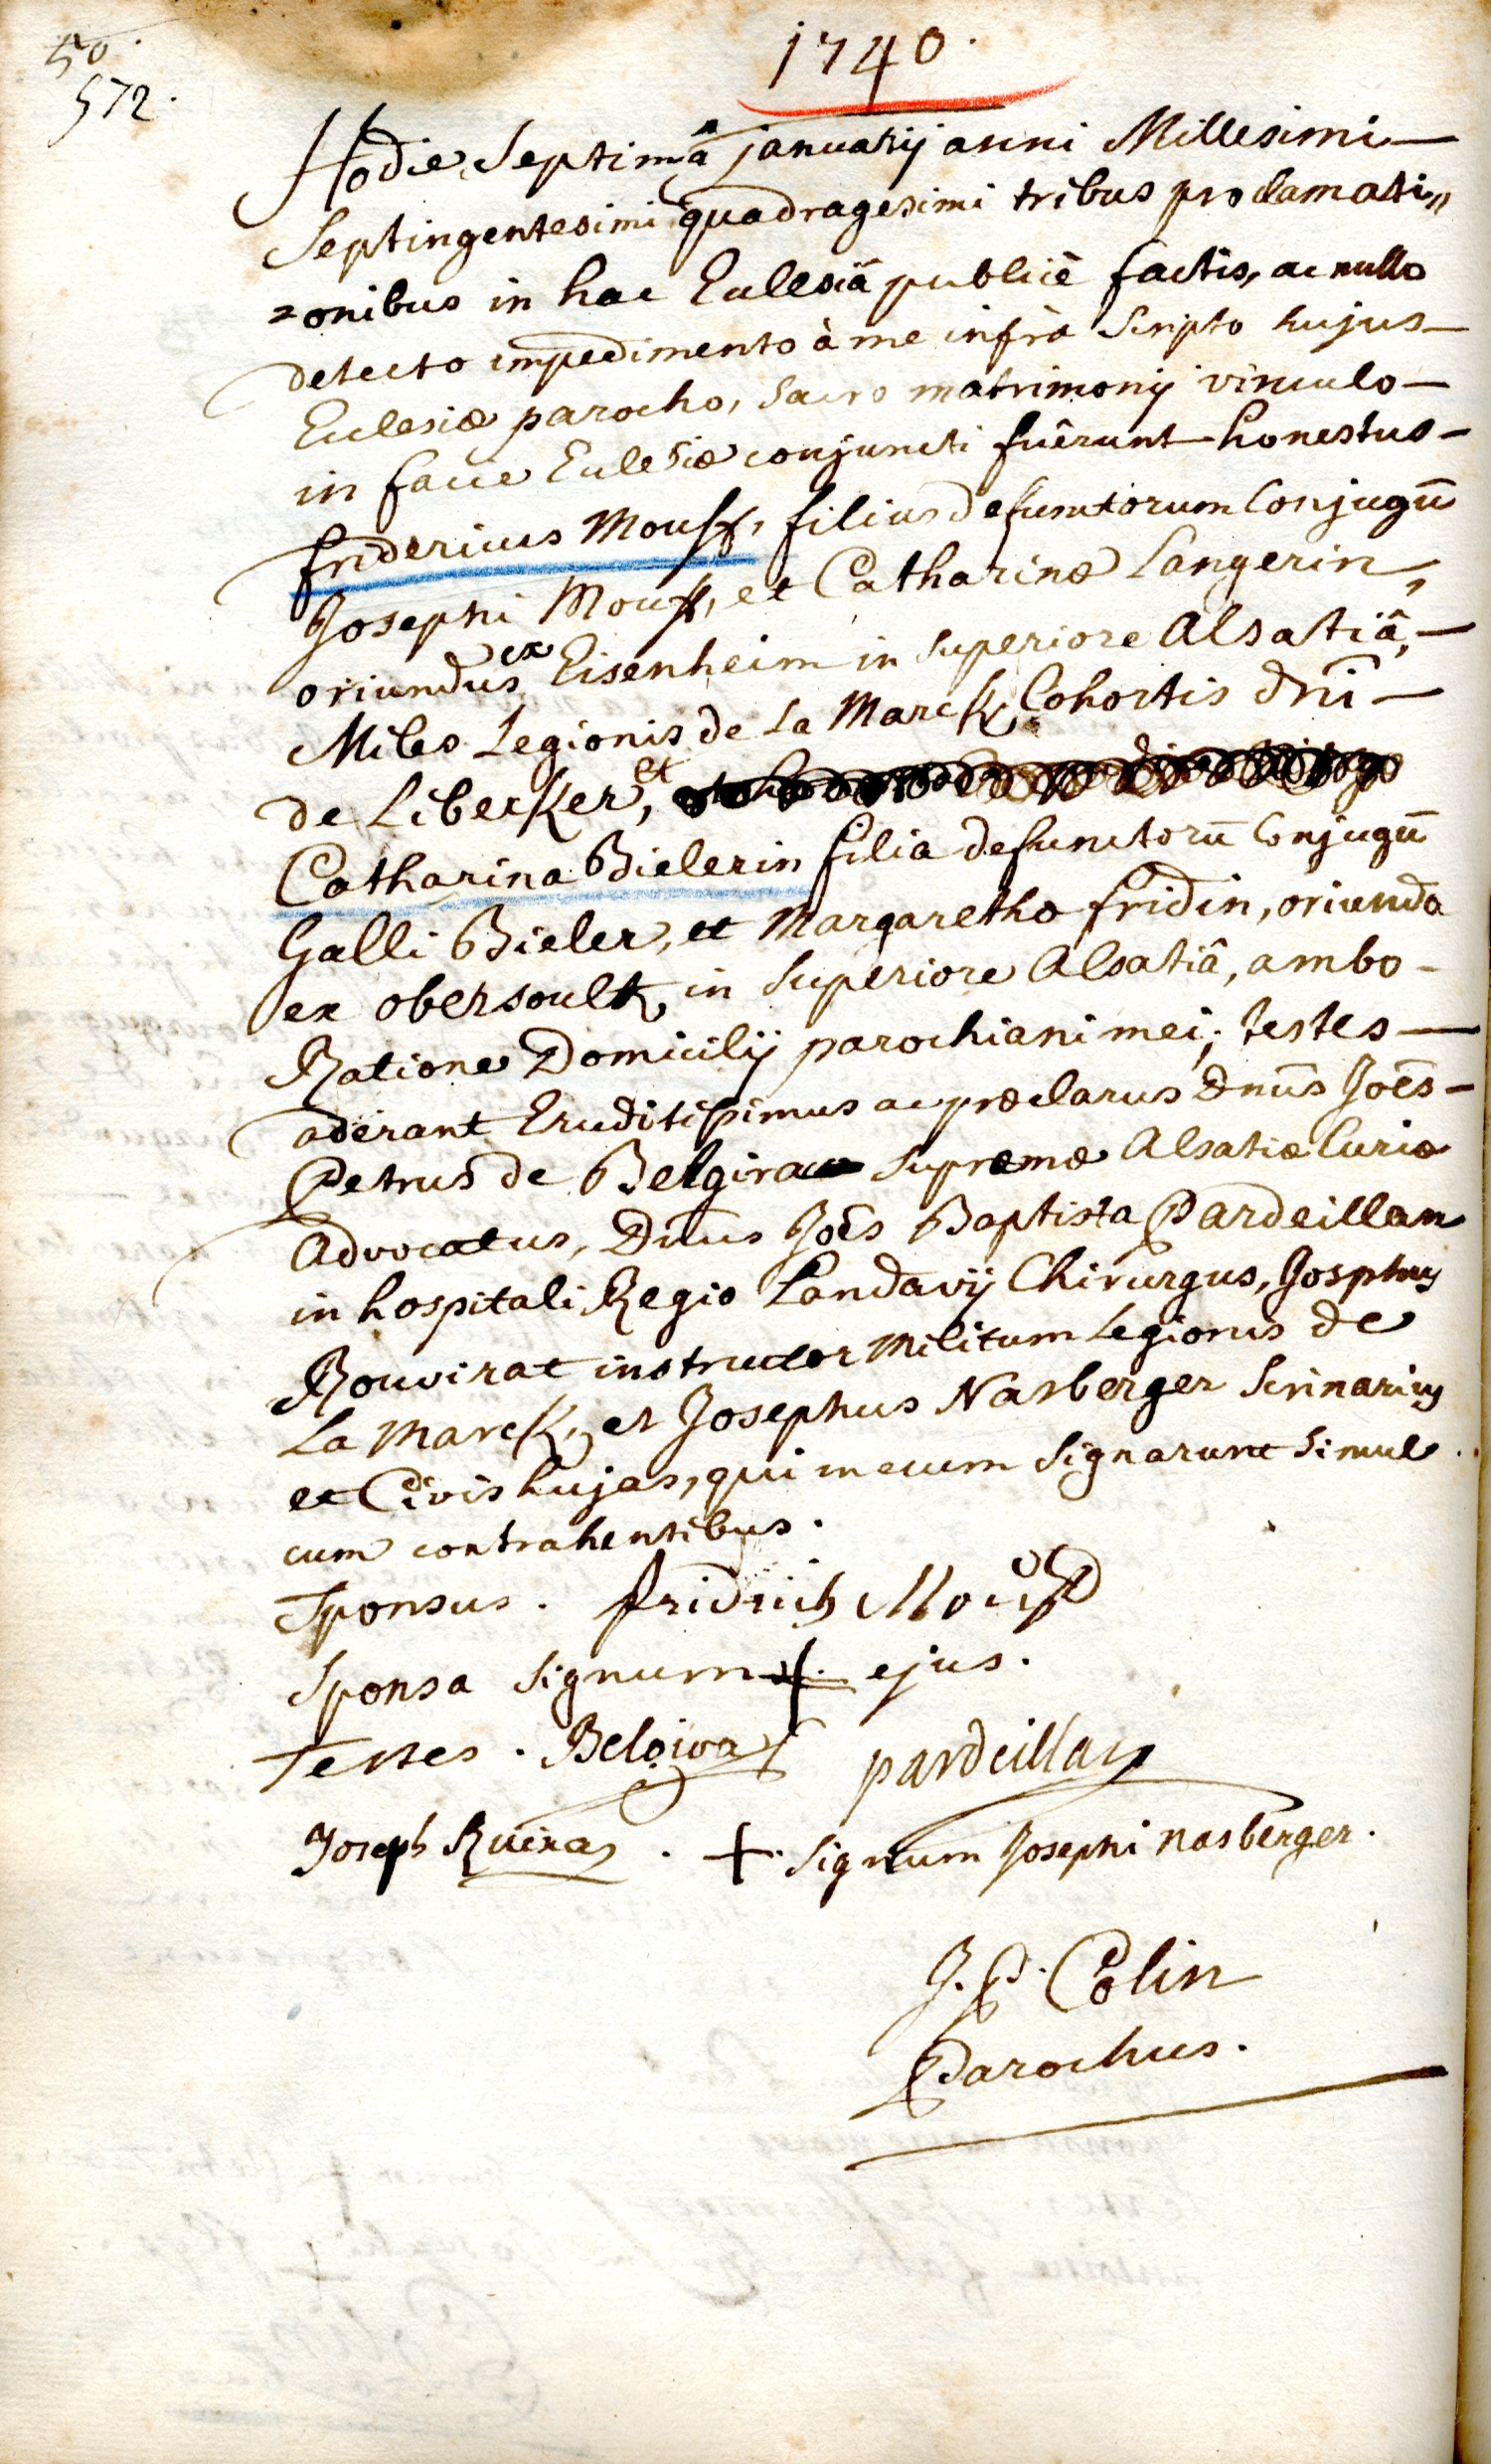 50.
572.
1740.
Hodie Septimâ januarij anni Millesimi
Septingentesimi quadragesimi tribus proclamati„
=onibus in hac Ecclesiâ publicè factis, ac nullo
detecto impedimento à me infrà Scripto hujus
Ecclesiæ parocho, Sacro matrimonij vinculo
in facie Ecclesiæ conjuncti fuêrunt honestus
fridericus Mouss, filius defunctorum Conjugū
Josephi Mouss, et Catharinæ Langerin,
oriundus ex Eisenheim in superiore Alsatiâ,
Miles Legionis de La Marck, Cohortis dñi
de Libecker, et
Catharina Bielerin filia defunctorū Conjugū
Galli Bieler, et Margarethæ fridin, oriunda
ex obersoultz in superiore Alsatiâ, ambo
Ratione Domicilij parochiani mei; testes
aderant Eruditissimus ac præclarus Dnūs Joēs
Petrus de Belgira supremæ Alsatiæ Curiæ
Advocatus, Dnus Joēs Baptista Pardeillan
in hospitali Regio Landavij Chirurgus, Josphus
Rouvirat instructor Militum Legionis de
La Marck, et Josephus Nasberger Scrinarius
et Civis hujas, qui mecum Signarunt Simul
cum contrahentibus.
Sponsus. fridrich Mous
Sponsa Signum + ejus.
Testes. Belgira pardeillan
Joseph Ruira . +. Signum Josephi Nasberger.
J. P. Colin
Parochus.